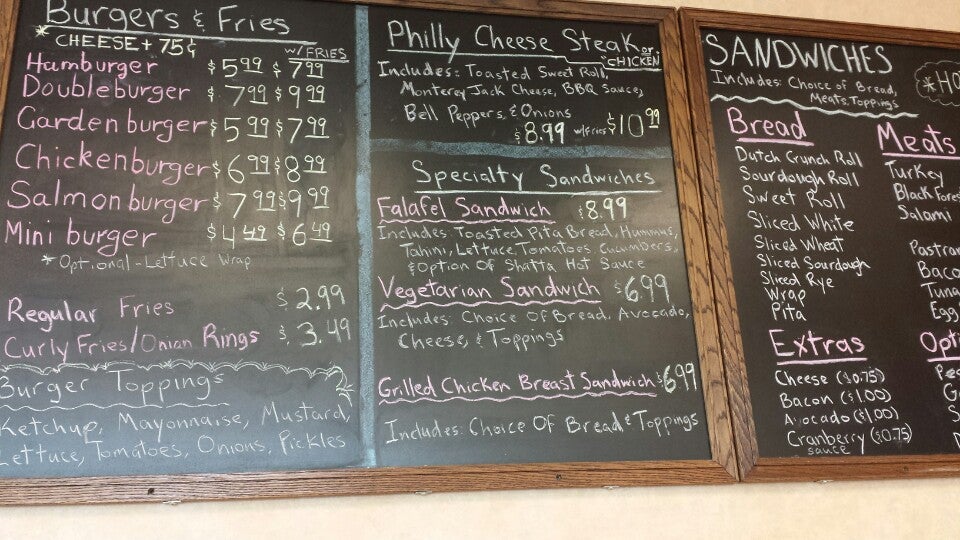 Burgers & Fries
* CHEESE + 75¢
w/ FRIES
Hamburger $5.99 $7.99
Doubleburger $7.99 $9.99
Garden burger $5.99 $7.99
Chickenburger $6.99 $8.99
Salmonburger $7.99 $9.99
Mini burger $4.49 $6.49
*Optional-Lettuce Wrap
Regular Fries $2.99
Curly Fries/Onion Rings $3.49
Burger Toppings
Ketchup, Mayonnaise, Mustard,
Lettuce, Tomatoes, Onions, Pickles
Philly Cheese Steak or CHICKEN
Includes: Toasted Sweet Roll,
Monterey Jack Cheese, BBQ Sauce,
Bell Peppers, & Onions
$8.99 w/fries $10.99
Specialty Sandwiches
Falafel Sandwich $8.99
Includes: Toasted Pita Bread, Hummus,
Tahini, Lettuce, Tomatoes, Cucumbers,
& Option Of Shatta Hot Sauce
Vegetarian Sandwich $6.99
Includes: Choice Of Bread, Avocado,
Cheese, & Toppings
Grilled Chicken Breast Sandwich $6.99
Includes: Choice Of Bread & Toppings
SANDWICHES
Includes: Choice of Bread,
Meats, Toppings
Bread
Dutch Crunch Roll
Sourdough Roll
Sweet Roll
Sliced White
Sliced Wheat
Sliced Sourdough
Sliced Rye
Wrap
Pita
Extras
Cheese ($0.75)
Bacon ($1.00)
Avocado ($1.00)
Cranberry ($0.75)
sauce
Meats
Turkey
Black Fores
Salami
Pastram
Baco
Tuna
Egg